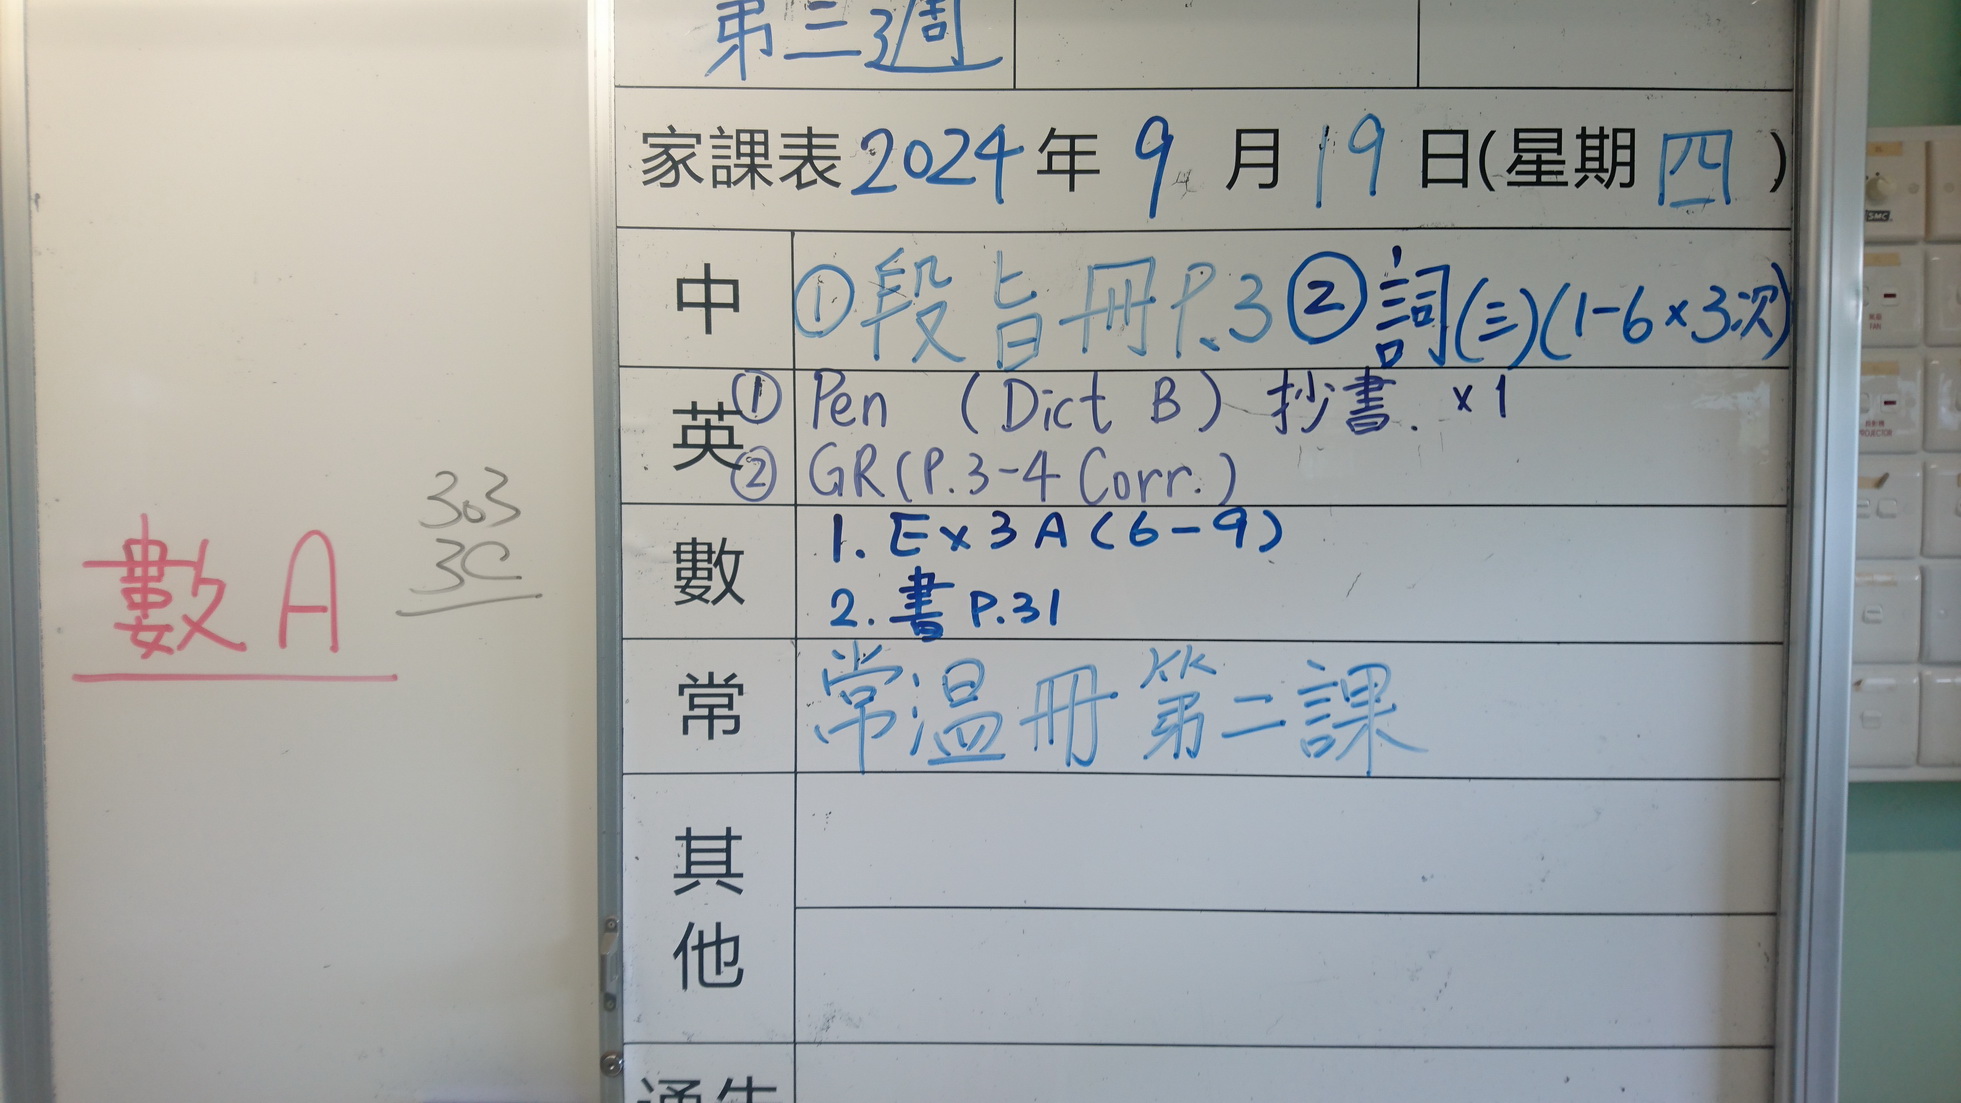 第三週
家課表2024年9月19日(星期四)
中 ①段旨冊P.3②詞(三)(1-6×3次)
英 ① Pen (Dict B) 抄書. ×1
② GR(P.3-4 Corr.)
數 1. Ex3A(6-9)
2. 書P.31
常 常温冊第二課
其他
通告
數A
303
3C
SMC
FAN
PROJECTOR